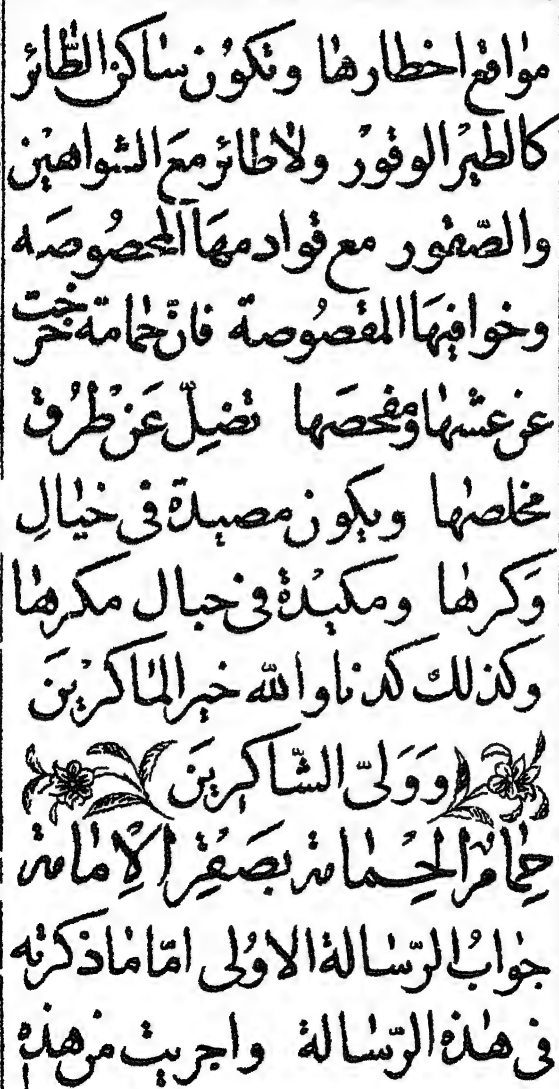 مواقع اخطارها وتكون ساكن الطّائر
كالطير الوقور ولاطائر مع الشواهين
والصّقور مع قوادمها المحصوصه
وخوافيها المقصوصة فانّ حمامة خرجت
عن عشها ومفحصَها تضلّ عَن طُرق
مخلصها ويكون مصيدة فى خيالِ
وَكرها ومكيدة فى حبال مكرها
وكذلك كدنا والله خير الماكرينَ
وَوَلىّ الشّاكرينَ
حِمامُ الحمامة بصَقرِ الاِمامة
جوابُ الرّسالة الاوُلى امّا ماذكرته
فى هذه الرّسالة واجريت من هذه